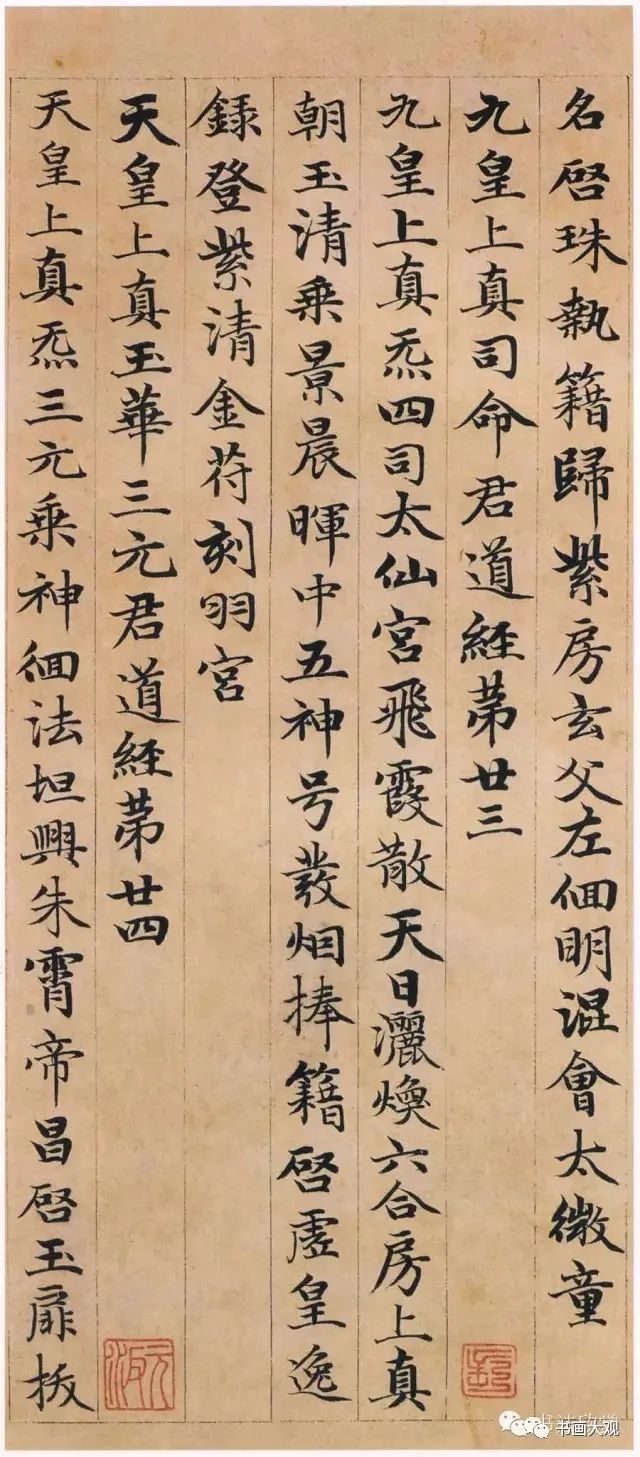 名啓珠執籍歸紫房玄父左佪明混會太微童
九皇上真司命君道經苐廿三
九皇上真炁四司太仙宮飛霞散天日灑煥六合房上真
朝玉清乗景晨暉中五神号裝烟捧籍啓虛皇逸
録登紫清金苻刻羽宮
天皇上真玉華三元君道經苐廿四
天皇上真炁三元乗神佪法坦興朱霄帝昌啓玉扉扳
书画大观